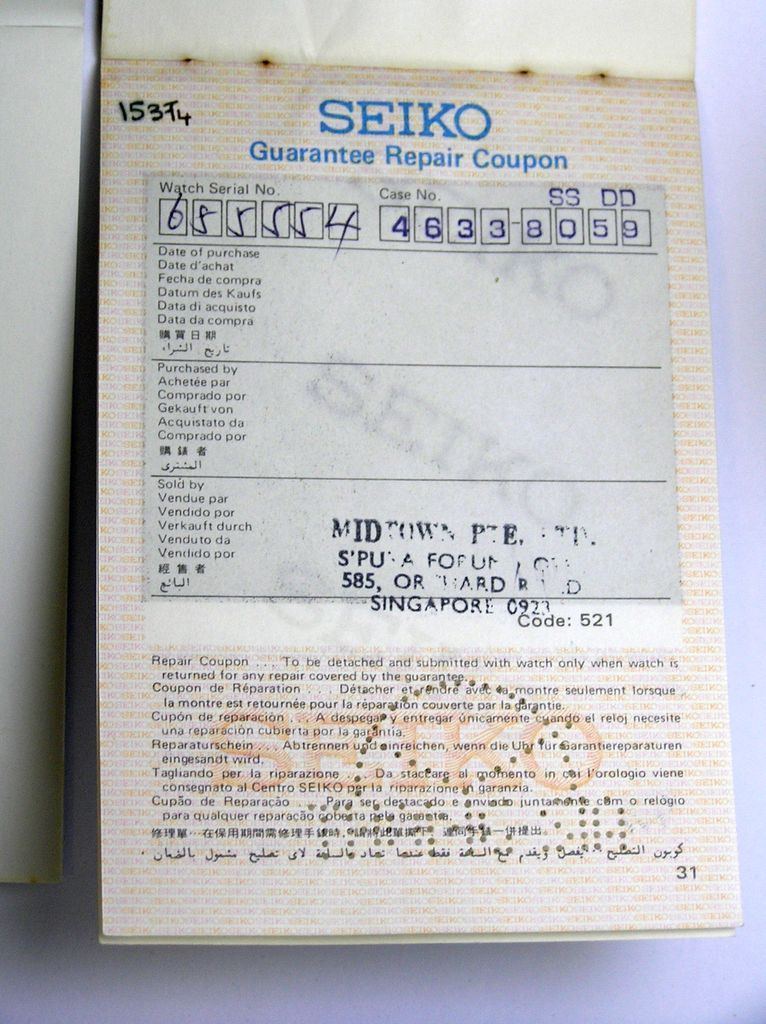 SEIKO
Guarantee Repair Coupon
Watch Serial No. Case No. SS DD
685554 4633-8059
Date of purchase
Date d'achat
Fecha de compra
Datum des Kaufs
Data di acquisto
Data da compra
購買日期
تاريخ الشراء
Purchased by
Achetée par
Comprado por
Gekauft von
Acquistato da
Comprado por
購錶者
المشترى
Sold by
Vendue par
Vendido por
Verkauft durch
Venduto da
Vendido por
經售者
البائع
MIDTOWN PTE. LTD.
S'PURA FORUM
585, ORCHARD ROAD
SINGAPORE 0923
Code: 521
Repair Coupon .... To be detached and submitted with watch only when watch is
returned for any repair covered by the guarantee.
Coupon de Réparation ... Détacher et rendre avec la montre seulement lorsque
la montre est retournée pour la réparation couverte par la garantie.
Cupón de reparación ... A despegar y entregar únicamente cuando el reloj necesite
una reparación cubierta por la garantía.
Reparaturschein .... Abtrennen und einreichen, wenn die Uhr für Garantiereparaturen
eingesandt wird.
Tagliando per la riparazione .... Da staccare al momento in cui l'orologio viene
consegnato al Centro SEIKO per la riparazione in garanzia.
Cupão de Reparação .... Para ser destacado e enviado juntamente com o relógio
para qualquer reparação coberta pela garantia.
修理單…在保用期間需修理手錶時,請將此單撕下,連同手錶一併提出。
كوبون التصليح ... يفصل ويقدم مع الساعة فقط عندما تعاد الساعة لاى تصليح مشمول بالضمان
31